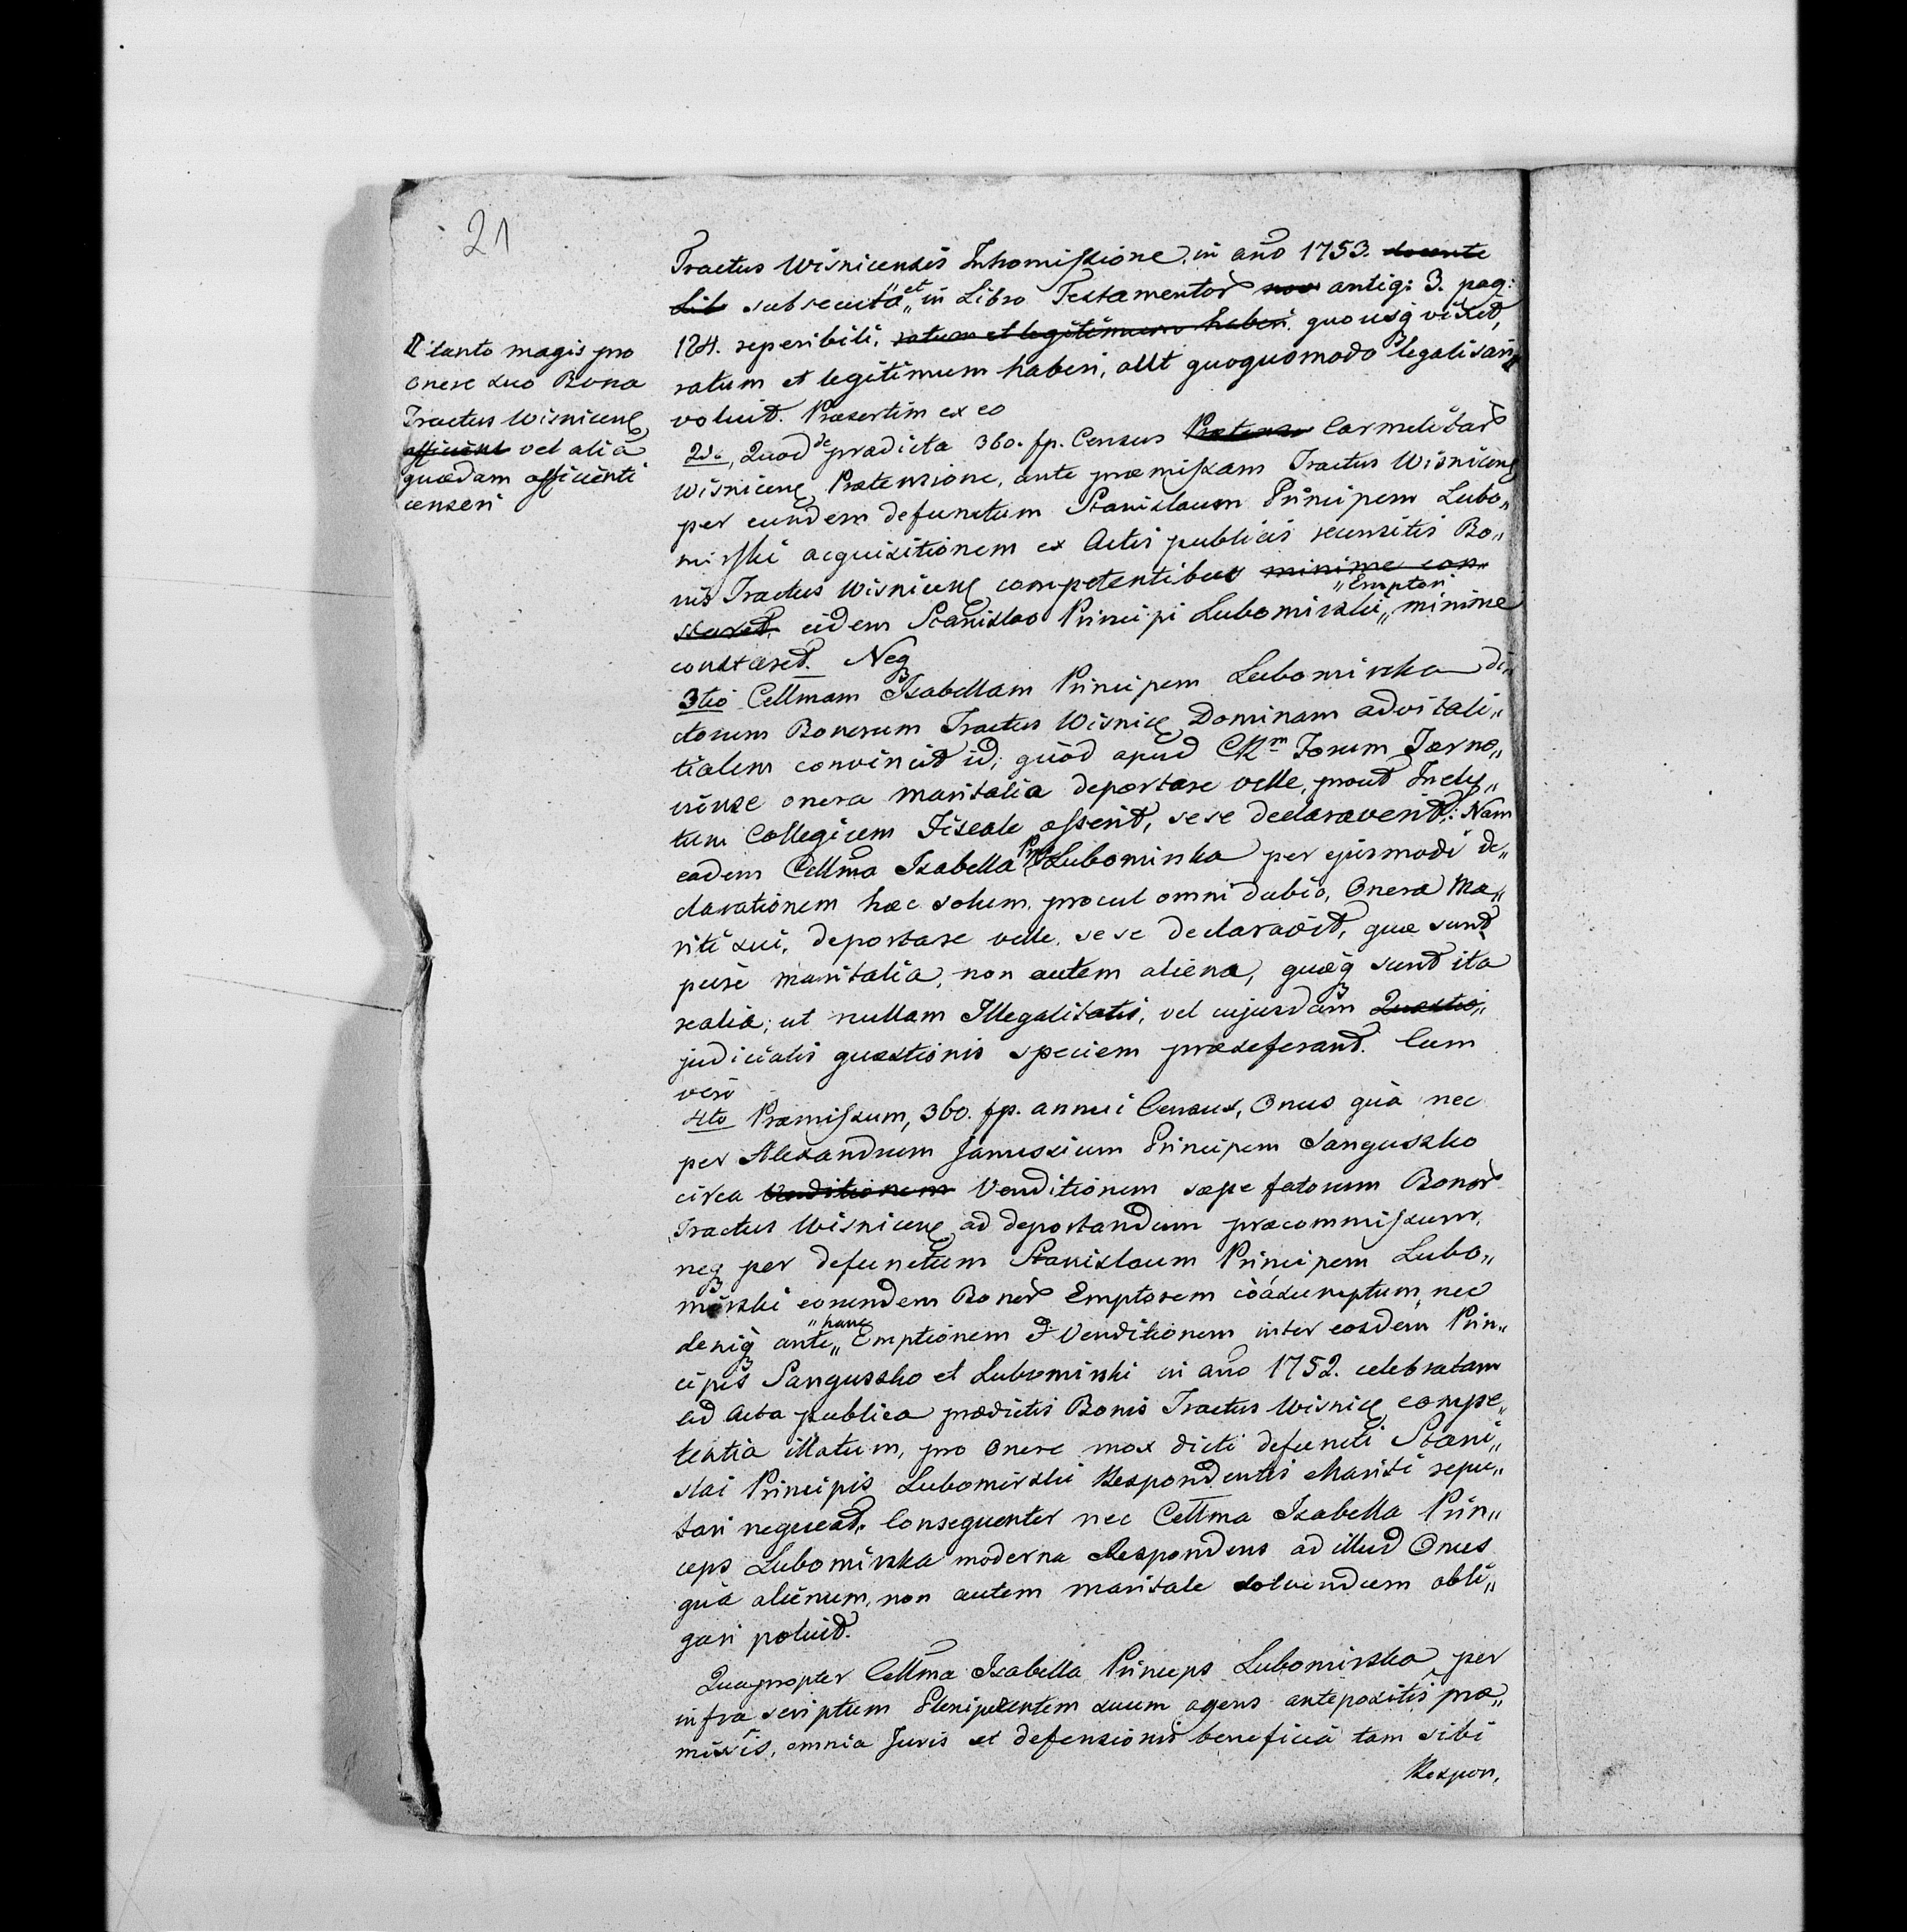 21
Tractus Wisnicensis Intromissione, in año 1753. docente
Lib subsecuta „et„ in Libro Testamentor̃ nov antiq: 3. pag:
124. reperibili, ratum et legitimum haberi. quousq vixit,
ratum et legitimum haberi, allt quoquomodo legalisari #
voluit. Præsertim ex eo
# tanto magis pro
onere suo Bona
Tractus Wisnicens
afficient vel alia
quædam afficienti
censeri
2do, Quod de prædicta 360. fp. Census Prætensi Carmelitar̃
Wisnicens Prætensione, ante præmissam Tractus Wisnicens
per eundem defunctum Stanislaum Principem Lubo„
mirski acquisitionem ex Actis publicis recensitis Bo„
nis Tractus Wisnicens competentibus minime con„
staret, eidem Stanislao Principi Lubomirski „Emptori„ minime
constaret. Neq
3tio Cellmam Isabellam Principem Lubomirska di„
ctorum Bonorum Tractus Wisnic Dominam advitali„
tialem convincit id, quòd apud CR.m Forum Tarno„
viense onera maritalia deportare velle, prout Incly„
tum Collegium Fiscale asserit, sese declaraverit: Nam
eadem Cellma Isabella Pps Lubomirska per ejusmodi de„
clarationem hæc solum procul omni dubio, Onera Ma„
riti sui, deportare velle sese declaravit, quæ sunt
purè maritalia, non autem aliena, quæq sunt ita
realia, ut nullam Illegalitatis, vel cujusdam Quæstio„
judicialis quæstionis speciem præseferant. Cum
verò
4to Præmissum, 360. fp. annui Census, Onus quà nec
per Alexandrum Janussium Principem Sanguszko
circa Venditionem Venditionem sæpe fatorum Bonor̃
Tractus Wisnicens ad deportandum præcommissum,
neq per defunctum Stanislaum Principem Lubo„
mirski eorundem Bonor̃ Emptorem coàssumptum, nec
deniq ante „hanc„ Emptionem et Venditionem inter eosdem Prin„
cipes Sanguszko et Lubomirski in año 1752. celebratam
ad Acta publica prædictis Bonis Tractus Wisnic compe„
tentia illatum, pro Onere mox dicti defuncti Stani„
slai Principis Lubomirski Respondentis Mariti repu„
tari nequeat. Consequenter nec Cellma Isabella Prin„
ceps Lubomirska moderna Respondens ad illud Onus
quà alienum, non autem maritale solvendum obli„
gari potuit.
Quapropter Cellma Isabella Princeps Lubomirska per
infra scriptum Plenipotentem suum agens antepositis præ„
missis, omnia Juris et defensionis beneficia tam sibi
Respon,